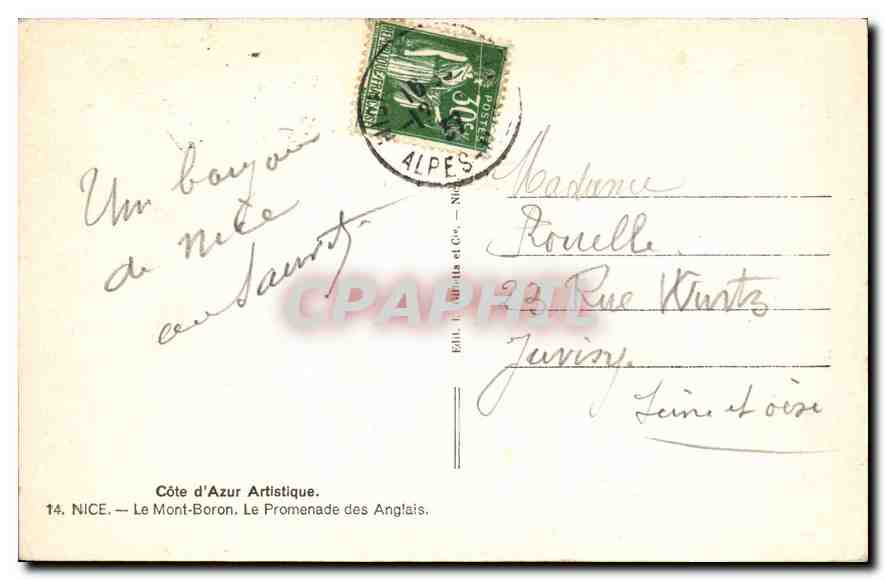 POSTES
30c
ALPES-M
Un bonjour
de Nice
Madame
Rouelle
23 Rue Wurtz
Juvisy
Seine et Oise
CPAPHIL
Edit. et Cie. — Nice
Côte d'Azur Artistique.
14. NICE. — Le Mont-Boron. Le Promenade des Anglais.